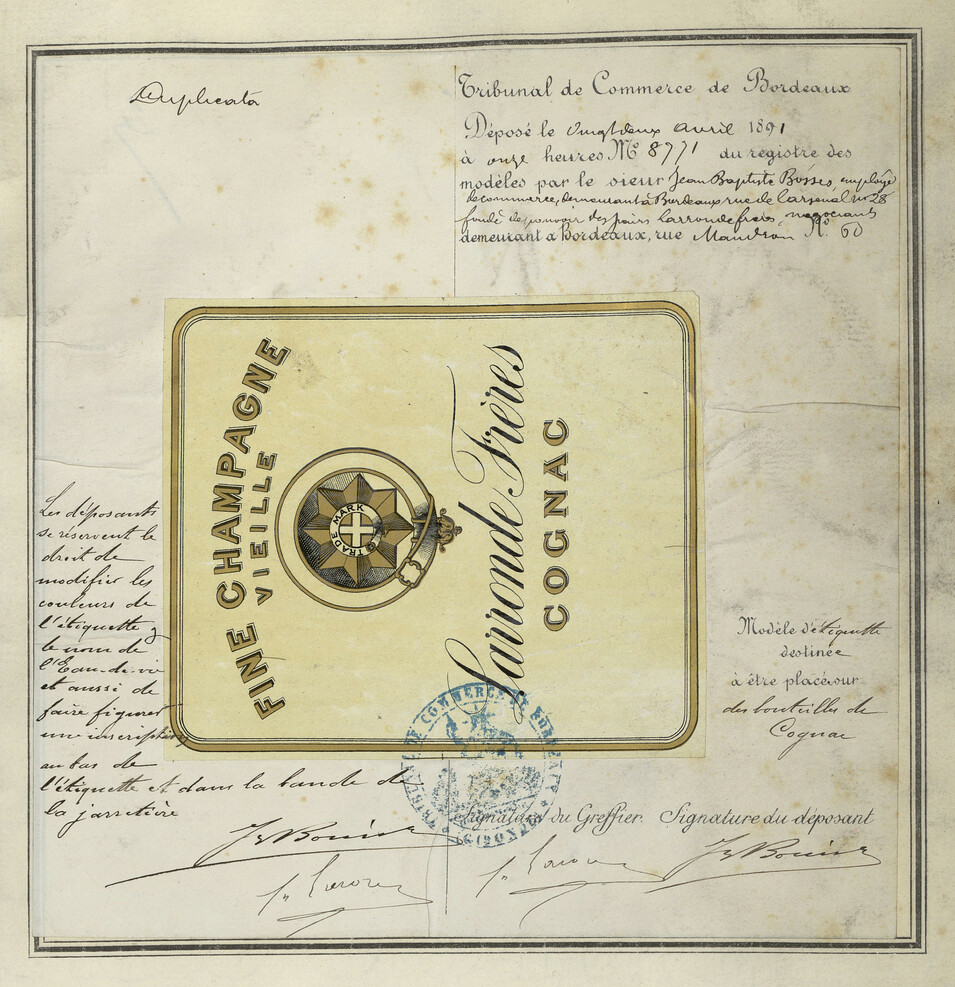 Duplicata
Tribunal de Commerce de Bordeaux
Déposé le vingt deux avril 1891
à onze heures No 8771 du registre des
modèles par le sieur Jean Baptiste employé
de commerce, demeurant à Bordeaux rue de l'arsenal no 28
fondé de pouvoir des Larronde frères, négociants
demeurant à Bordeaux, rue Mandron No. 60
FINE CHAMPAGNE
VIEILLE
TRADE MARK
Larronde Frères
COGNAC
Les déposants
se réservent le
droit de
modifier les
couleurs de
l'étiquette
le nom de
l'Eau-de-vie
et aussi de
faire figurer
une inscription
au bas de
l'étiquette et dans la bande de
la jarretière
Modèle d'étiquette
destinée
à être placé sur
des bouteilles de
Cognac
TRIBUNAL DE COMMERCE DE BORDEAUX
(GIRONDE)
Signature du Greffier. Signature du déposant